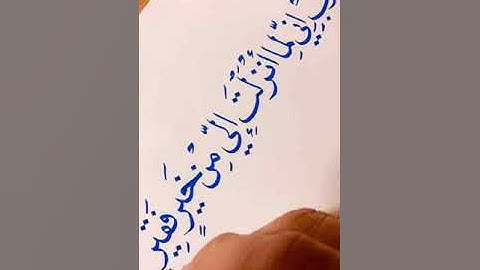 اِنِّي لِمَا اَنْزَلْتَ اِلَيَّ مِنْ خَيْرٍ فَقِيْر